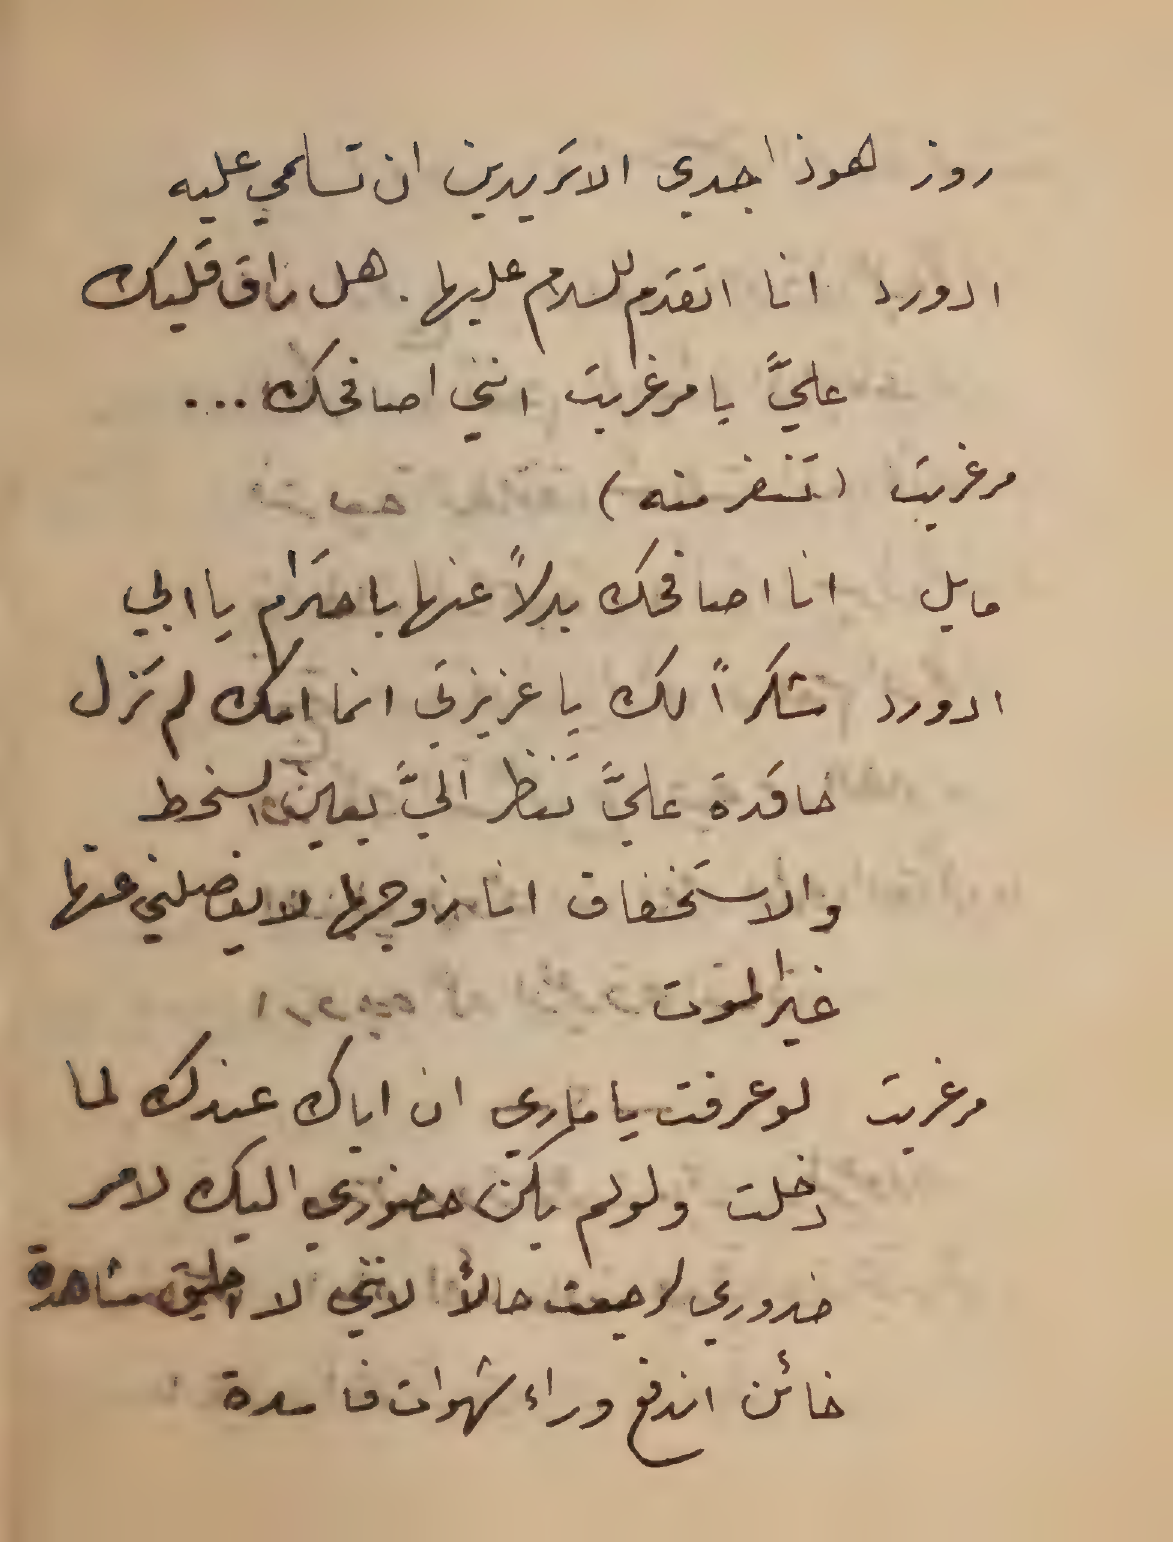 روز هوذا جدي الا تريدين ان تسلمي عليه
ادورد انا اتقدم للسلام عليها . هل راق قلبك
عليَّ يا مرغريت انني اصافحك ...
مرغريت ( تنفر منه )
مايل انا اصافحك بدلاً عنها باحترام يا ابي
ادورد شكراً لك يا عزيزتي انما امك لم تزل
حاقدة عليَّ تنظر اليَّ بعين السخط
والاستخفاف انا زوجها لا يفصلني عنها
غير الموت
مرغريت لو عرفت يا ماري ان اباك عندك لما
دخلت ولو لم يكن حضوري اليك لامر
ضروري لرجعت حالاً لانني لا اطيق مشاهدة
خائن اندفع وراء شهوات فاسدة